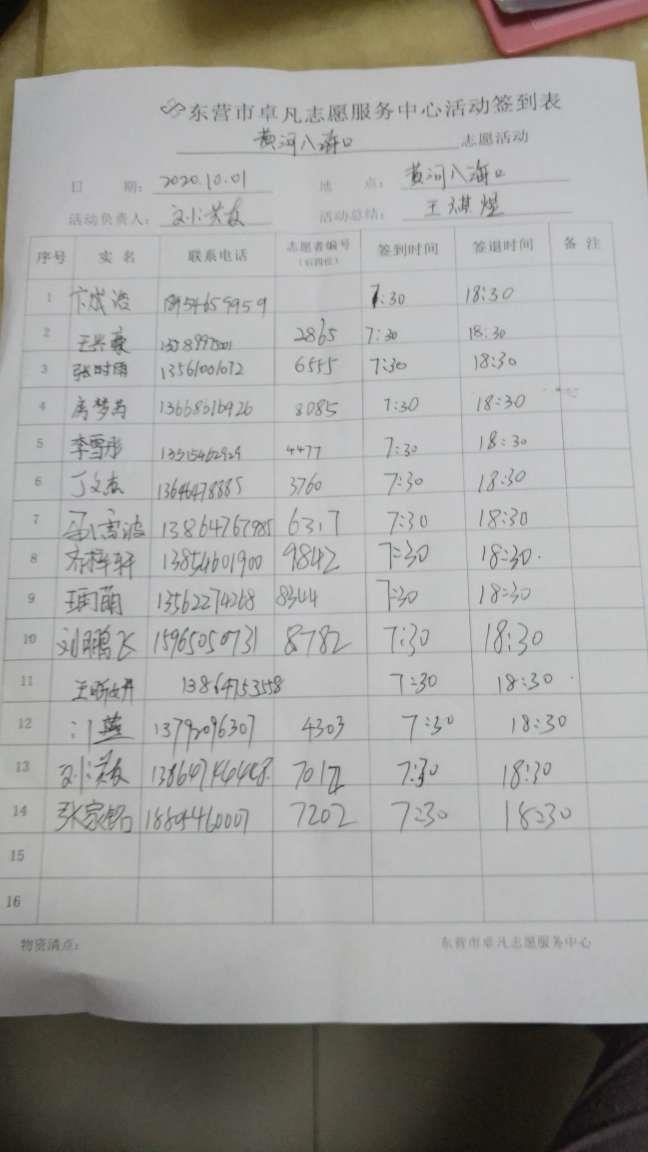 东营市卓凡志愿服务中心活动签到表
黄河入海口 志愿活动
日 期: 2020.10.01 地 点: 黄河入海口
活动负责人: 活动总结: 王琪煜
序号 实名 联系电话 志愿者编号(后四位) 签到时间 签退时间 备注
1 卞成浩 18954659959 7:30 18:30
2 2865 7:30 18:30
3 张时雨 13561001072 6555 7:30 18:30
4 房梦 7:30 18:30
5 李雪彤 13515462929 4477 7:30 18:30
6 丁文杰 13646478885 3760 7:30 18:30
7 13864767985 6317 7:30 18:30
8 齐梓轩 13854601900 9842 7:30 18:30.
9 13562274268 8344 7:30 18:30
10 刘鹏飞 15965050731 8782 7:30 18:30
11 13864753558 7:30 18:30
12 13792096307 4303 7:30 18:30
13 7:30 18:30
14 张家铭 18805460007 7202 7:30 18:30
15
16
物资清点: 东营市卓凡志愿服务中心